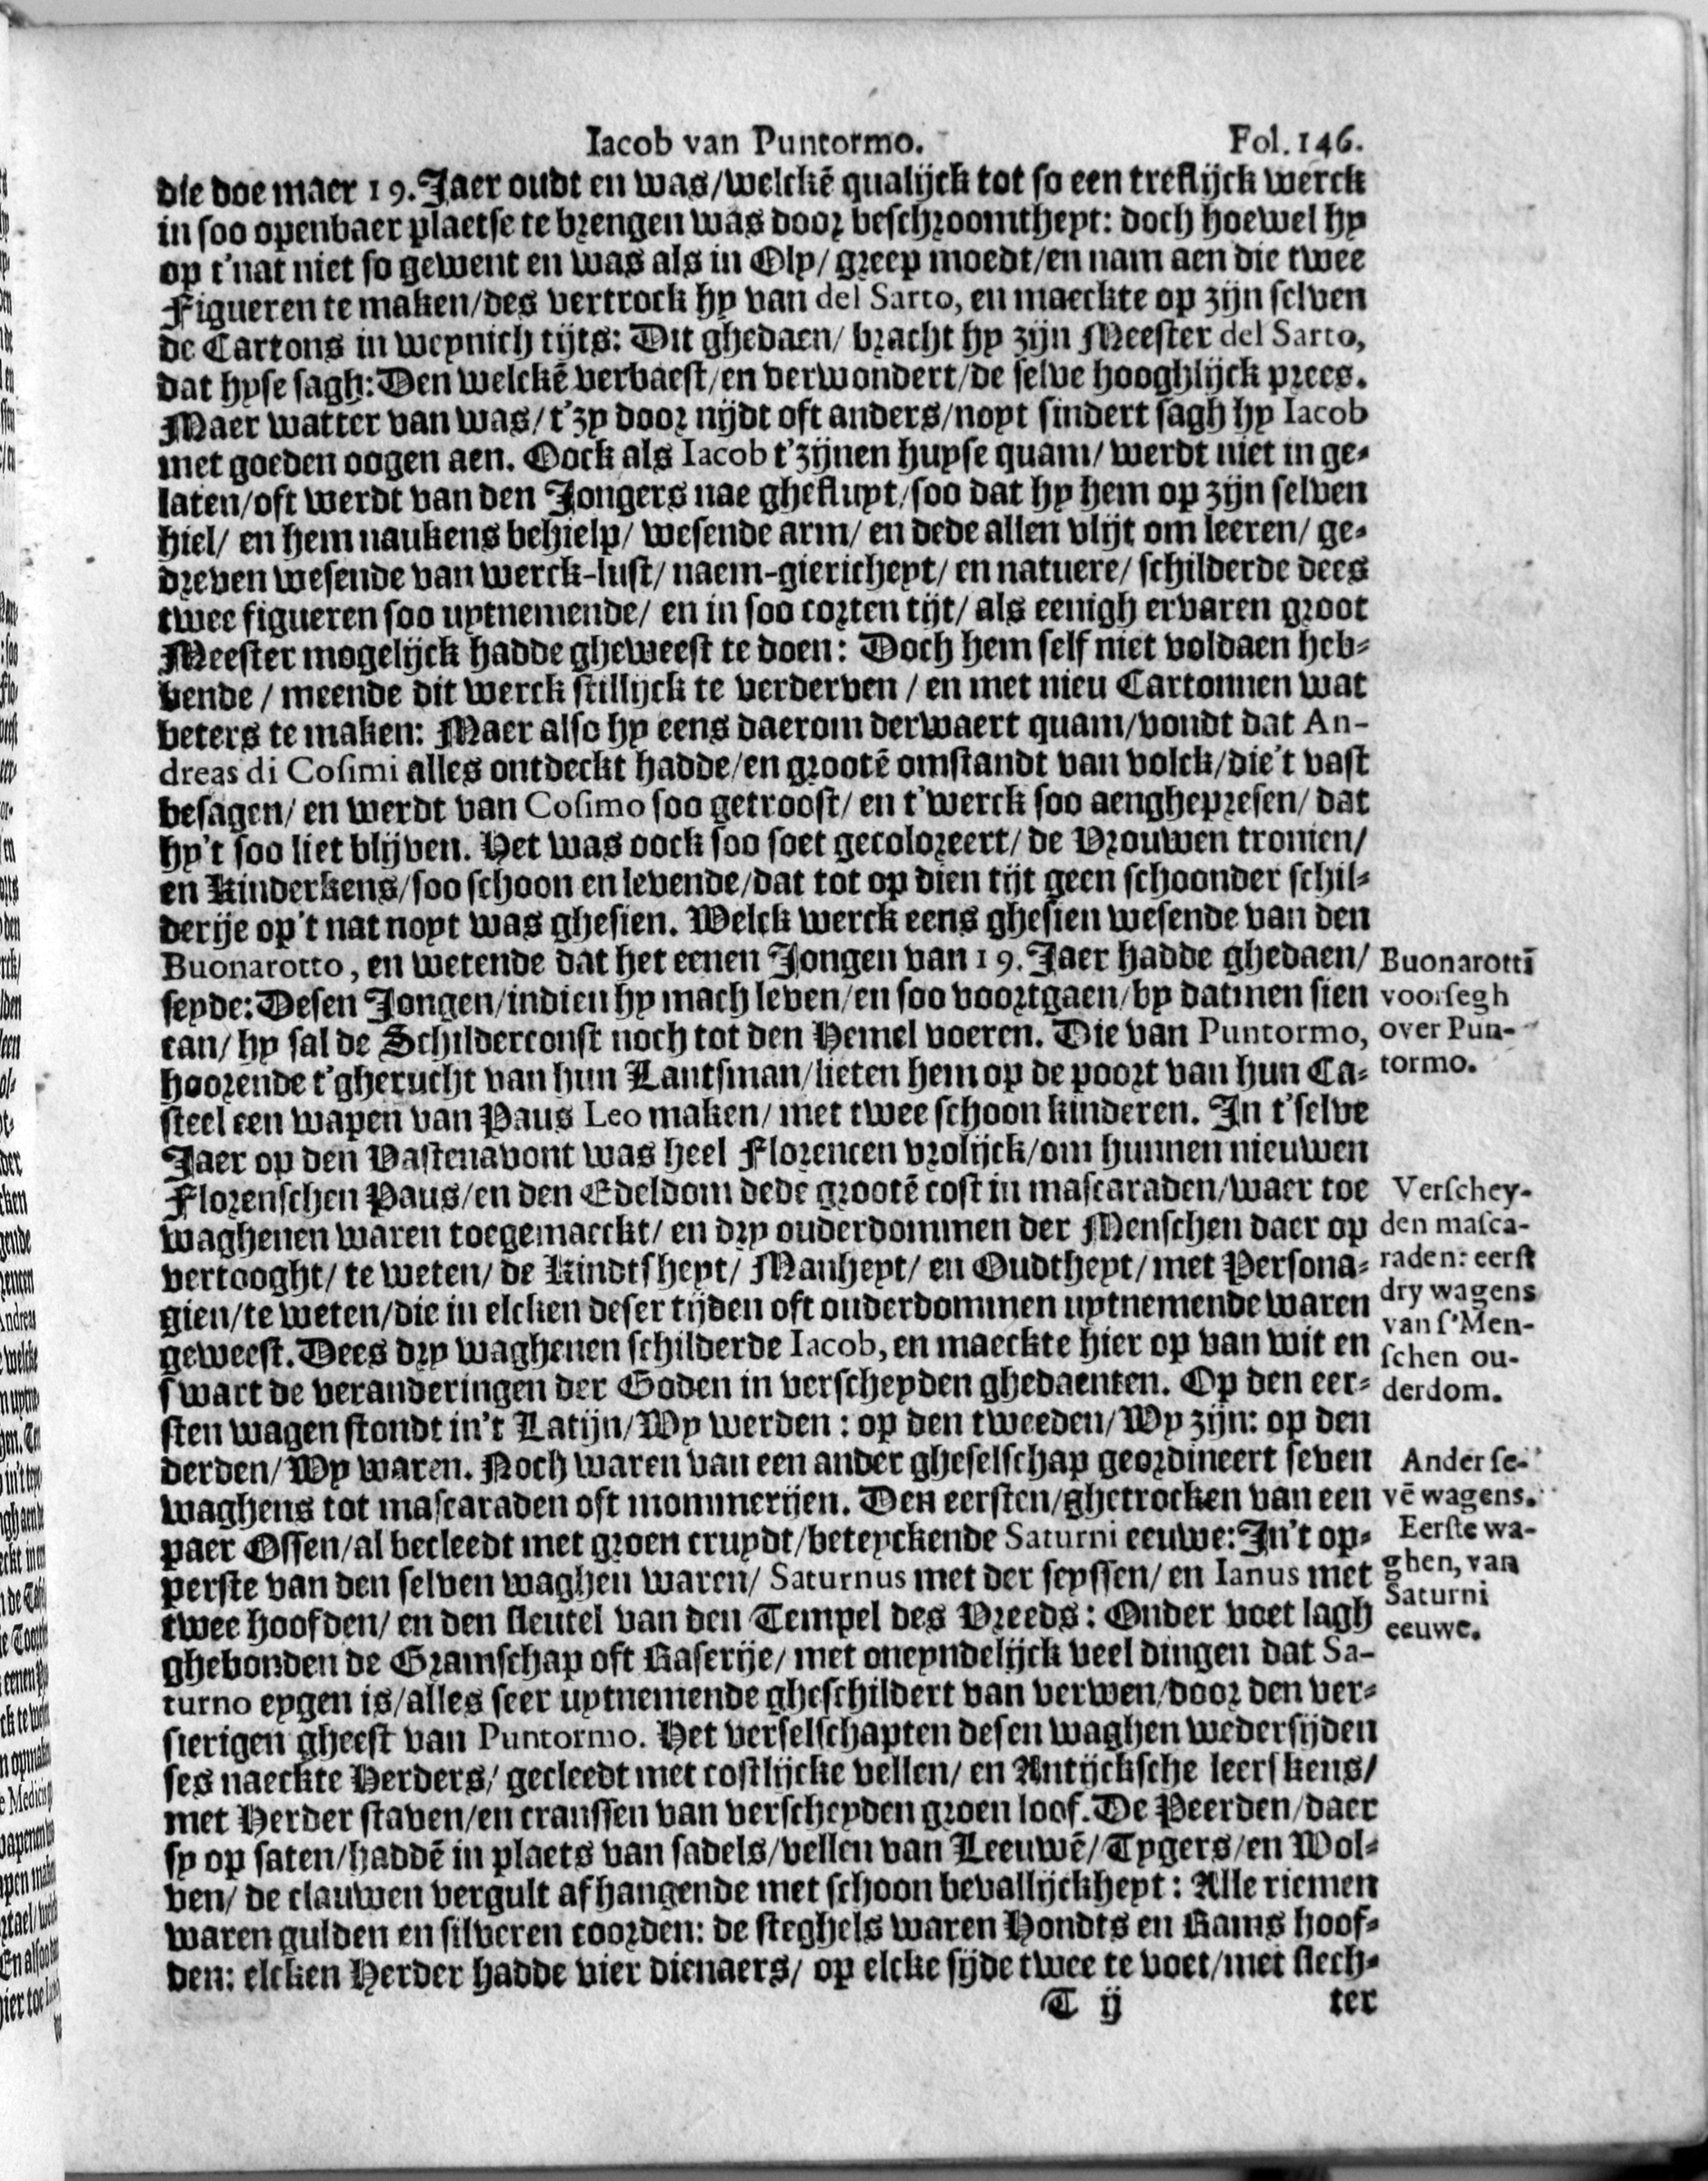 Iacob van Puntormo. Fol. 146.
die doe maer 19. Jaer oudt en was/welckē qualijck tot so een treflijck werck
in soo openbaer plaetse te brengen was door beschroomtheyt: doch hoewel hy
op t'nat niet so gewent en was als in Oly/ greep moedt/en nam aen die twee
Figueren te maken/des vertrock hy van del Sarto, en maeckte op zijn selven
de Cartons in weynich tijts: Dit ghedaen/ bracht hy zijn Meester del Sarto,
dat hyse sagh: Den welckē verbaest/en verwondert/de selve hooghlijck prees.
Maer watter van was/t'zy door nijdt oft anders/noyt sindert sagh hy Iacob
met goeden oogen aen. Oock als Iacob t'zijnen huyse quam/ werdt niet in ge-
laten/oft werdt van den Jongers nae ghefluyt/soo dat hy hem op zijn selven
hiel/ en hem naukens behielp/ wesende arm/ en dede allen vlijt om leeren/ ge-
dreven wesende van werck-lust/ naem-giericheyt/ en natuere/ schilderde dees
twee figueren soo uytnemende/ en in soo corten tijt/ als eenigh ervaren groot
Meester mogelijck hadde gheweest te doen: Doch hem self niet voldaen heb-
bende / meende dit werck stillijck te verderven / en met nieu Cartonnen wat
beters te maken: Maer also hy eens daerom derwaert quam/vondt dat An-
dreas di Cosimi alles ontdeckt hadde/en grootē omstandt van volck/die't vast
besagen/ en werdt van Cosimo soo getroost/ en t'werck soo aengheprresen/ dat
hy't soo liet blijven. Het was oock soo soet gecoloreert/ de Vrouwen tronien/
en Kinderkens/soo schoon en levende/dat tot op dien tijt geen schoonder schil-
derije op't nat noyt was ghesien. Welck werck eens ghesien wesende van den
Buonarotto, en wetende dat het eenen Jongen van 19. Jaer hadde ghedaen/
seyde: Desen Jongen/indien hy mach leven/en soo voortgaen/by datmen sien
can/ hy sal de Schilderconst noch tot den Hemel voeren. Die van Puntormo,
hoorende t'gherucht van hun Lantsman/lieten hem op de poort van hun Ca-
steel een wapen van Paus Leo maken/ met twee schoon kinderen. In t'selve
Jaer op den Vastenavont was heel Florencen vrolijck/om hunnen nieuwen
Florenschen Paus/en den Edeldom dede grootē cost in mascaraden/waer toe
waghenen waren toegemaeckt/ en dry ouderdommen der Menschen daer op
vertooght/ te weten/ de Kindtsheyt/ Manheyt/ en Oudtheyt/ met Persona-
gien/te weten/die in elcken deser tijden oft ouderdommen uytnemende waren
geweest. Dees dry waghenen schilderde Iacob, en maeckte hier op van wit en
swart de veranderingen der Goden in verscheyden ghedaenten. Op den eer-
sten wagen stondt in't Latijn/Wy werden: op den tweeden/Wy zijn: op den
derden/Wy waren. Noch waren van een ander gheselschap geordineert seven
waghens tot mascaraden oft mommerijen. Den eersten/ghetrocken van een
paer Ossen/al becleedt met groen cruydt/beteyckende Saturni eeuwe: In't op-
perste van den selven waghen waren/ Saturnus met der seyssen/ en Ianus met
twee hoofden/ en den sleutel van den Tempel des Vreeds: Onder voet lagh
ghebonden de Gramschap oft Raserije/ met oneyndelijck veel dingen dat Sa-
turno eygen is/alles seer uytnemende gheschildert van verwen/door den ver-
sierigen gheest van Puntormo. Het verselschapten desen waghen wedersijden
ses naeckte Herders/ gecleedt met costlijcke vellen/ en Antijcksche leerskens/
met Herder staven/en cranssen van verscheyden groen loof. De Peerden/daer
sy op saten/haddē in plaets van sadels/vellen van Leeuwē/Tygers/en Wol-
ven/ de clauwen vergult afhangende met schoon bevallijckheyt: Alle riemen
waren gulden en silveren coorden: de steghels waren Hondts en Rams hoof-
den: elcken Herder hadde vier dienaers/ op elcke sijde twee te voet/met slech-
T ij ter
Buonarottī
voorsegh
over Pun-
tormo.
Verschey-
den masca-
raden: eerst
dry wagens
van s'Men-
schen ou-
derdom.
Ander se-
vē wagens.
Eerste wa-
ghen, van
Saturni
eeuwe.